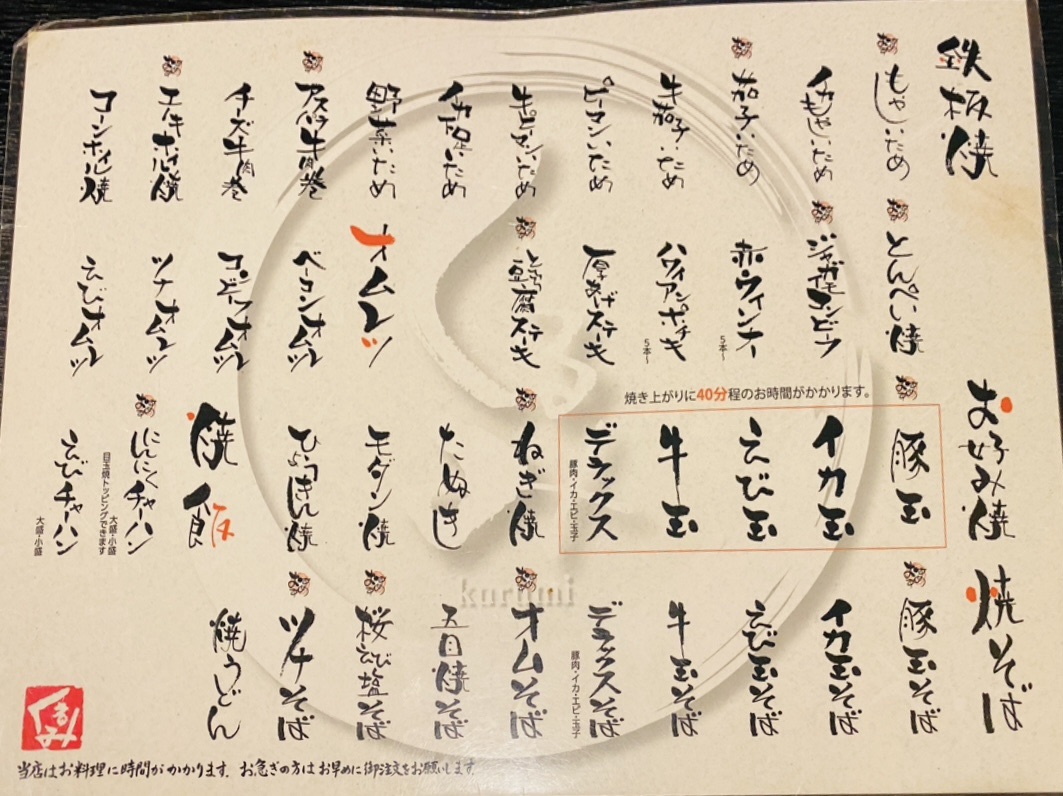 鉄板焼
もやしいため
イカもやしいため
茄子いため
牛茄子いため
ピーマンいため
牛ピーマンいため
イカ下足いため
野菜いため
アスパラ牛肉巻
チーズ牛肉巻
エノキホイル焼
コーンホイル焼
とんぺい焼
ジャガイモコンビーフ
赤ウィンナー
5本〜
ハワイアンポチキ
5本〜
厚あげステーキ
とろろ豆腐ステーキ
オムレツ
ベーコンオムレツ
コンビーフオムレツ
ツナオムレツ
えびオムレツ
お好み焼
焼き上がりに40分程のお時間がかかります。
豚玉
イカ玉
えび玉
牛玉
デラックス
豚肉・イカ・エビ・玉子
ねぎ焼
たぬき
モダン焼
ひょうきん焼
焼飯
にんにくチャーハン
大盛・小盛
目玉焼トッピングできます
えびチャーハン
大盛・小盛
焼そば
豚玉そば
イカ玉そば
えび玉そば
牛玉そば
デラックスそば
豚肉・イカ・エビ・玉子
オムそば
五目焼そば
桜えび塩そば
ツナそば
焼うどん
kurumi
くるみ
当店はお料理に時間がかかります。お急ぎの方はお早めに御注文をお願いします。